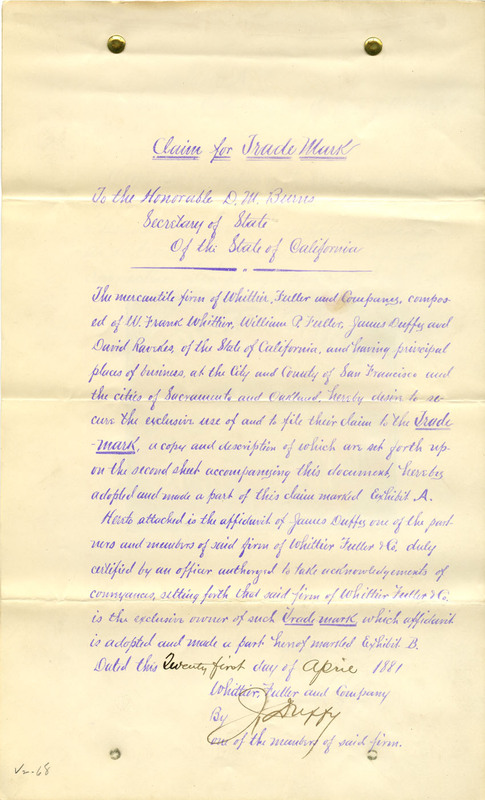 Claim for Trade Mark
To the Honorable D. M. Burns
Secretary of State
Of the State of California
The mercantile firm of Whittier, Fuller and Company, compos-
ed of W. Frank Whittier, William P. Fuller, James Duffy and
David , of the State of California, and having principal
places of business, at the City and County of San Francisco and
the cities of Sacramento and Oakland, hereby desire to se-
cure the exclusive use of and to file their claim to the Trade
-mark, a copy and description of which are set forth up-
on the second sheet accompanying this document, hereby
adopted and made a part of this claim marked Exhibit A.
Hereto attached is the affidavit of James Duffy one of the part
ners and members of said firm of Whittier Fuller & Co. duly
certified by an officer authorized to take acknowledgements of
conveyances, setting forth that said firm of Whittier Fuller & Co.
is the exclusive owner of such Trade mark, which affidavit
is adopted and made a part hereof marked Exhibit B.
Dated this Twenty first day of April 1881
Whittier, Fuller and Company
By J. Duffy
one of the members of said firm.
V2-68